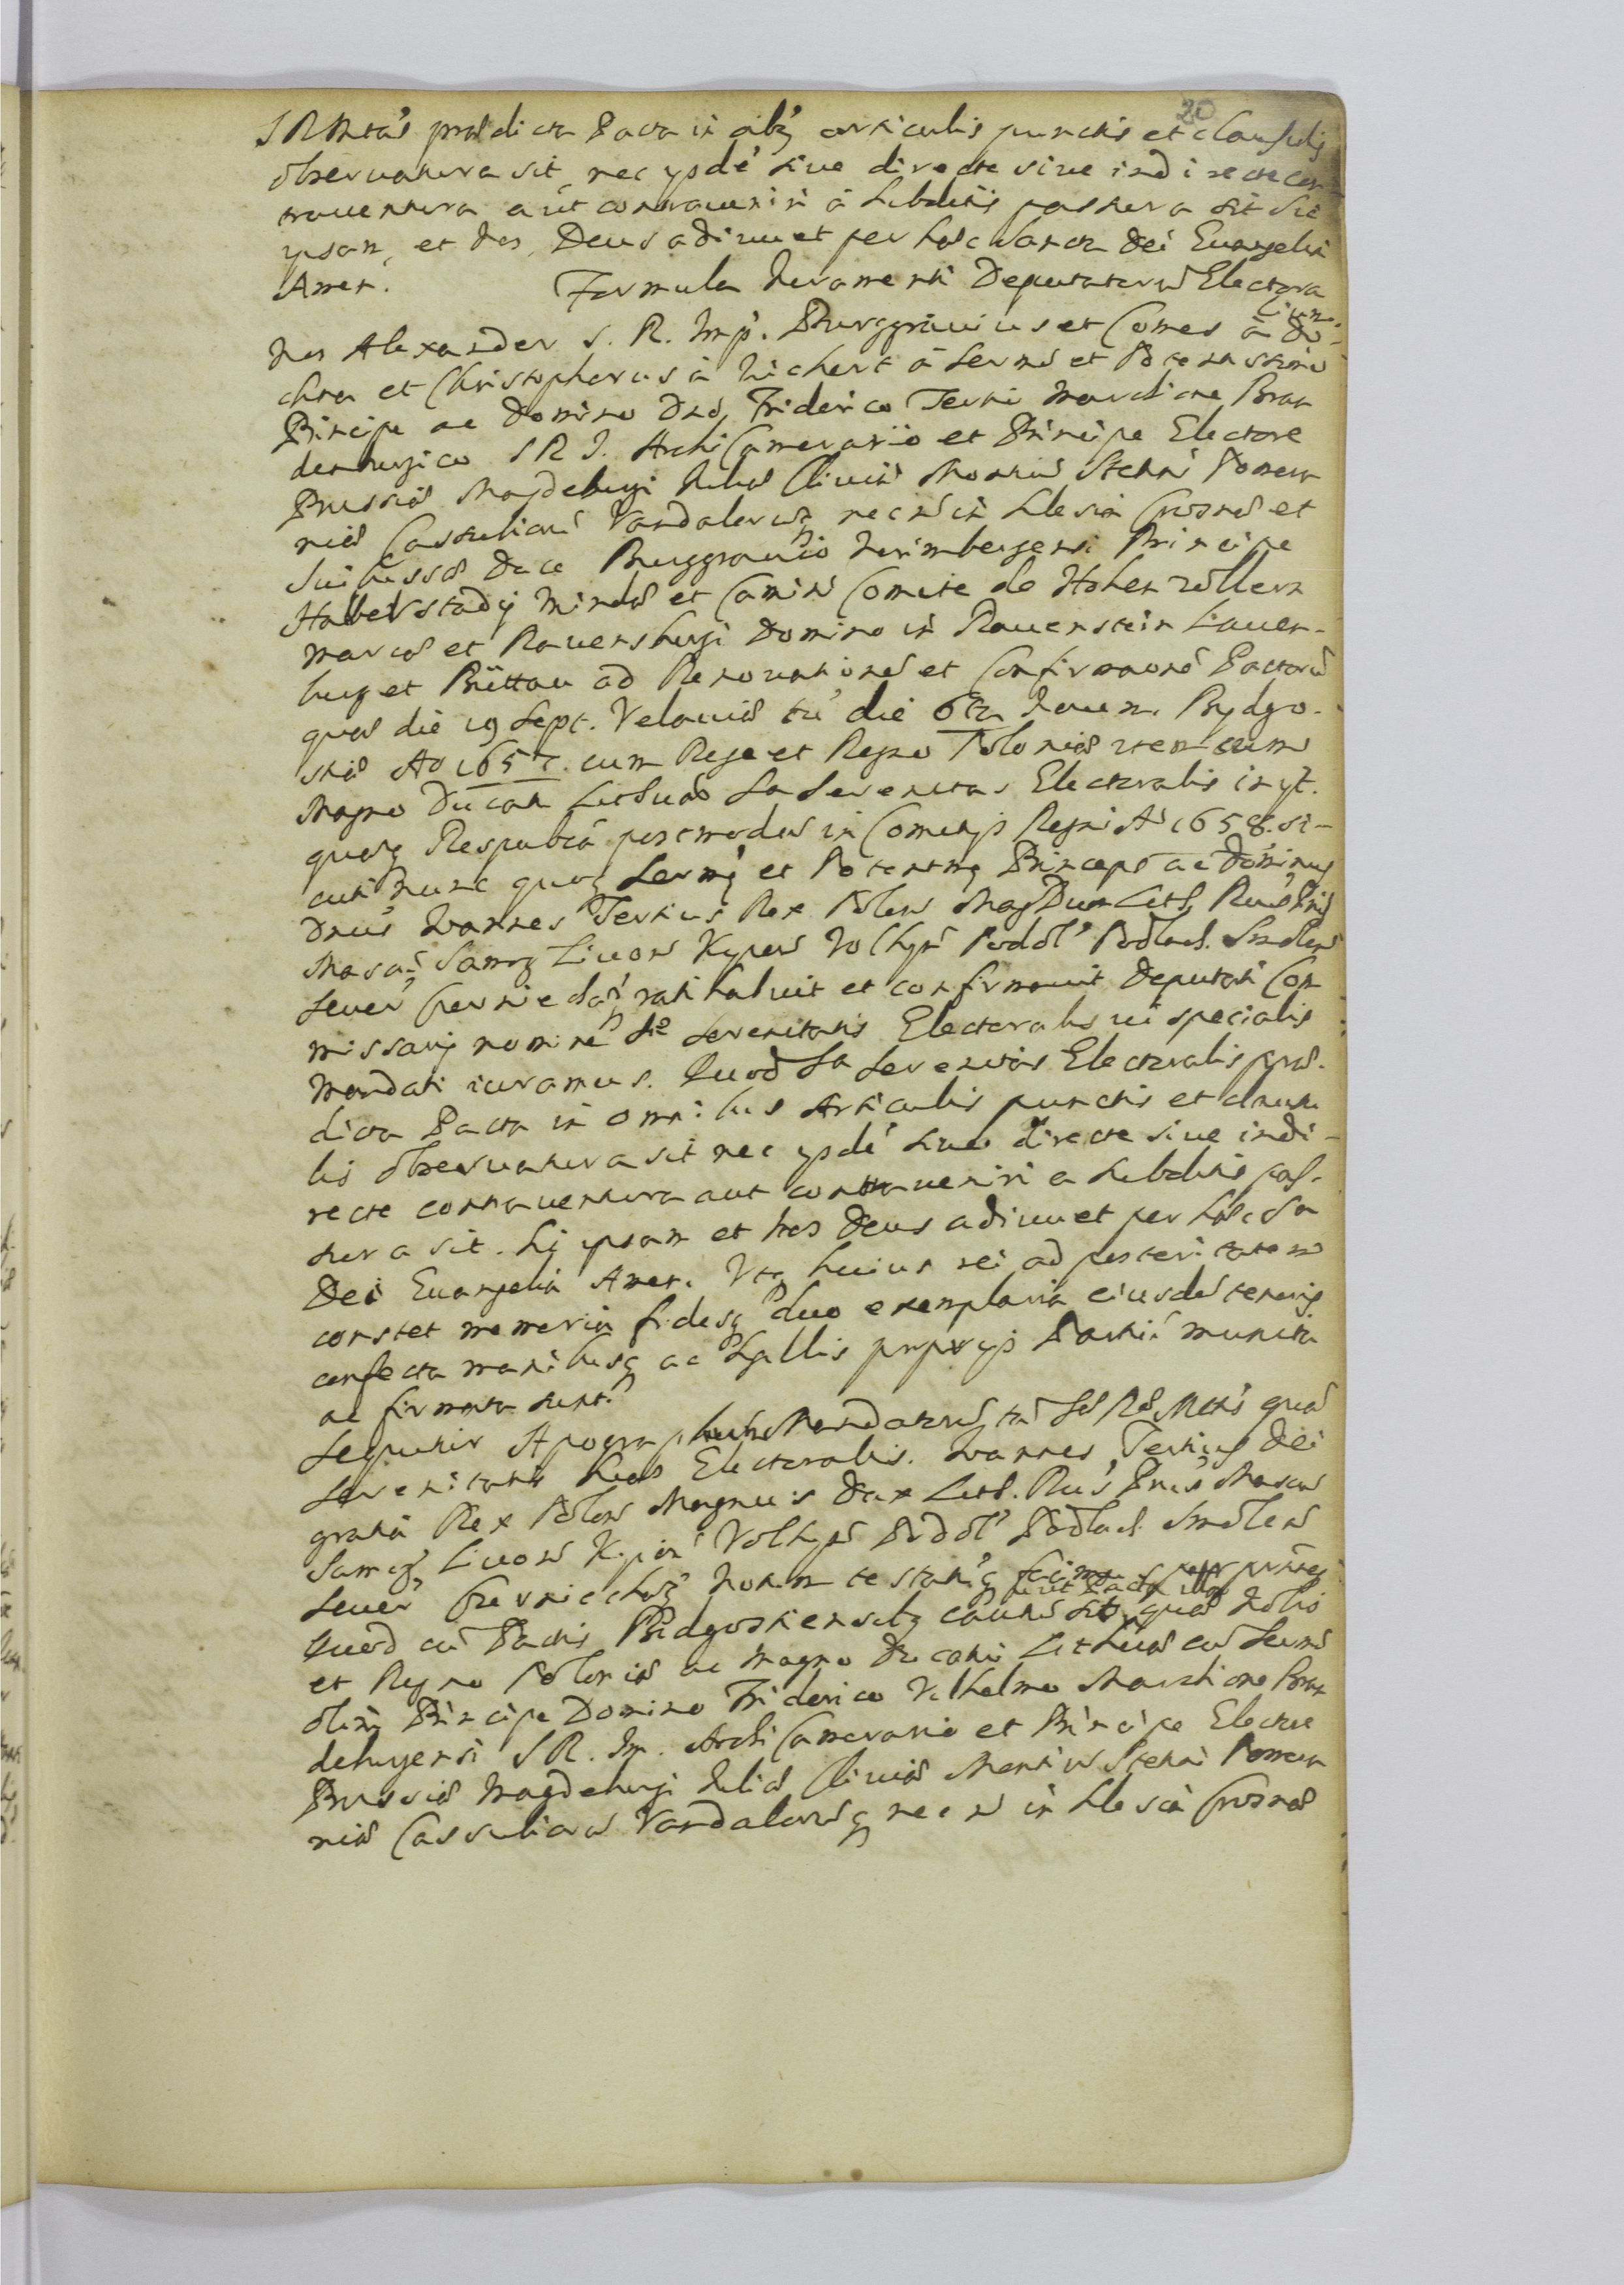 20
S R Mtas praedicta Pacta in oibz articulis punctis et clausulis
observatura sit, nec ysdē sive directe sive indirecte con
traventura aut contraveniri à Subditis passura sit Sic
ipsam, et Nos, Deus adiuvet per haec Sancta Dei Euangelia
Amen. Formula Iuramenti Deputatorū Electora
lium.
Nos Alexander S. R. Imp. Burggravius et Comes à Do-
chna et Christopherus à à Sermo et Potentissimo
Principe ac Domino Dno, Friderico Tertio Marchione Bran
deburgico S R I. Archi Camerario et Principe Electore
Prussiae Magdeburgi Iuliae Cliviae Montiū Stetini Pomera
niae Cassubiorū Vandalorumq necnō in Silesia Crosnae et
Suibussae Duce Burggravio Norimbergensi Principe
Halberstadij Mindae et Camini Comite de Hohenzollern
Marcae et Ravensburgi Domino in Ravenstein Lauen-
burg et Büttau ad Renovationē et Confirmaonē Pactorū
quae die 19 Sept. Velaviae tū die 6ta Novem. Bydgo-
stiae Ao 1657. cum Rege et Regno Poloniae item cum
Magno Ducatu Lithuae Sa Serenitas Electoralis inyt.
quaeq Respublca postmodū in Comitijs Regni Ao 1658. si-
cuti nunc quoq Sermq et Potentmq Princeps ac Dominus
Dnus Ioannes Tertius Rex Polon Mag Dux Lith, Rus Prus
Masoā Samog Livon Kyiov Volhyn Podol Podlach. Smolen
Sever Czerniechoq ratihabuit et confirmavit Deputati Com
missarij nomine Sae Serenitatis Electoralis vi specialis
Mandati iuramus. Quod Sa Serenitas Electoralis prae-
dicta Pacta in omnibus Articulis punctis et clausu
lis observatura sit nec ysdē sive directe sive indi-
recte contraventura aut contraveniri a Subditis pas-
sura sit. Sic ipsam et Nos Deus adiuvet per haec Sa
Dei Euangelia Amen. Utq huius rei ad posteritatem
constet memoria fidesq duo exemplaria eiusdē tenoris
confecta manibusq ac Sigillis proprijs Partiū munita
ac firmata sunt.
Sequitur Apographum Mandatorū, tā Sae Rae Mttis quā
Serenitatis Suae Electoralis. Ioannes Tertius Dei
gratia Rex Polon Magnus Dux Lith. Rus Prus Masov
Samog Livon Kyiov Volhyn Podol Podlach Smolen
Sever Czerniechoq Notum testatūq facimus
Quod cū Pactis Bidgostiensibz cautū sit, ut Pacta illa quae Nobis
et Regno Poloniae ac Magno Ducatui Lithuae cū Sermo
olim Principe Domino Friderico Vilhelmo Marchione Bran
deburgensi S R. Im. Archi Camerario et Principe Electore
Prussiae Magdeburgi Iuliae Cliviae Montiū Stetini Pomera
niae Cassubiorū Vandalorūq necnō in Silesia Crosnae